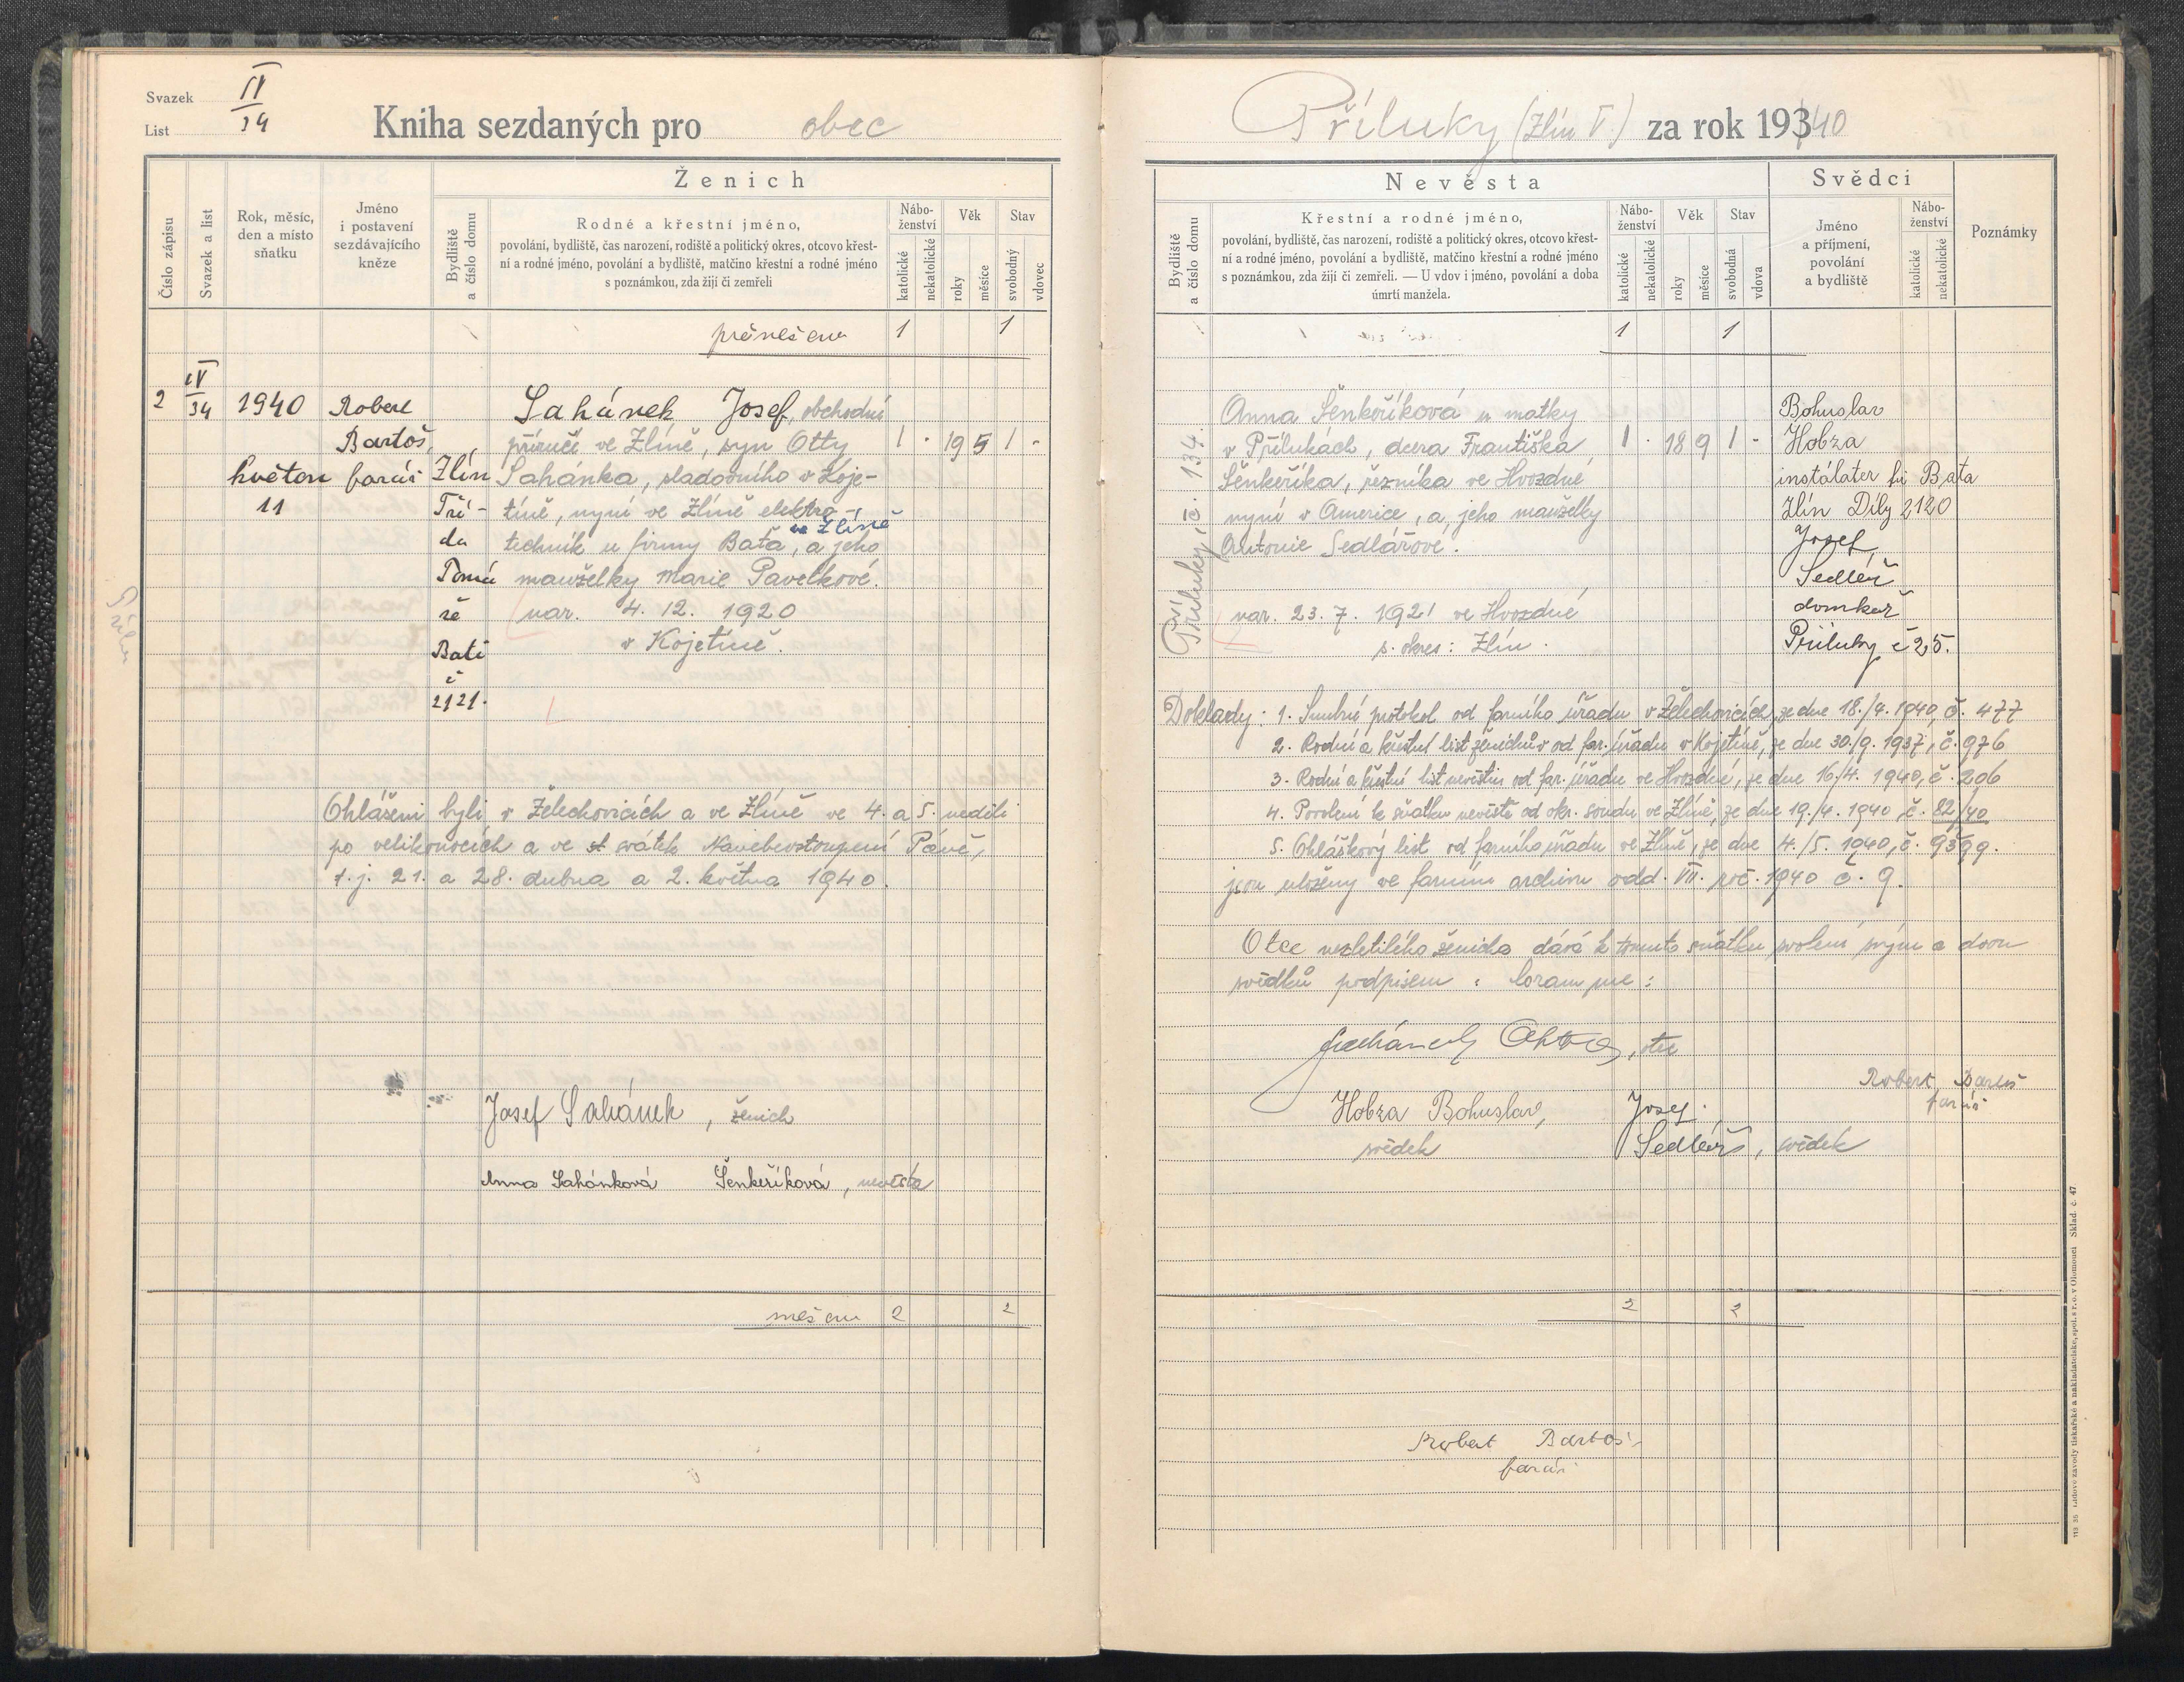 Svazek IV
List 34
Kniha sezdaných pro obec
Číslo zápisu
Svazek a list
Rok, měsíc,
den a místo
sňatku
Jméno
i postavení
sezdávajícího
kněze
Ženich
Bydliště
a číslo domu
Rodné a křestní jméno,
povolání, bydliště, čas narození, rodiště a politický okres, otcovo křest-
ní a rodné jméno, povolání a bydliště, matčino křestní a rodné jméno
s poznámkou, zda žijí či zemřeli
Nábo-
ženství
katolické
nekatolické
Věk
roky
měsíce
Stav
svobodný
vdovec
přenešeno 1 1
2 IV/34 1940 Robert
Bartoš,
květen farář
11
Zlín
Tří-
da
Tomá
še
Bati
č
2121.
Sahánek Josef, obchodní
příručí ve Zlíně, syn Otty 1 · 19 5 1 -
Sahánka, sladovního v Koje-
tíně, nyní ve Zlíně elektro-
ve Zlíně
technik u firmy Baťa, a jeho
manželky Marie Pavelkové.
nar. 4. 12. 1920
v Kojetíně.
Ohlášeni byli v Želechovicích a ve Zlíně ve 4. a 5. neděli
po velikonocích a ve st svátek Nanebevstoupení Páně,
t. j. 21. a 28. dubna a 2. května 1940.
Josef Sahánek, ženich
Anna Sahánková Šenkeříková, nevěsta
2 2
Příluky (Zlín V.) za rok 1934/40
Nevěsta
Bydliště
a číslo domu
Křestní a rodné jméno,
povolání, bydliště, čas narození, rodiště a politický okres, otcovo křest-
ní a rodné jméno, povolání a bydliště, matčino křestní a rodné jméno
s poznámkou, zda žijí či zemřeli. — U vdov i jméno, povolání a doba
úmrtí manžela.
Nábo-
ženství
katolické
nekatolické
Věk
roky
měsíce
Stav
svobodná
vdova
Svědci
Jméno
a příjmení,
povolání
a bydliště
Nábo-
ženství
katolické
nekatolické
Poznámky
1 1
Příluky, č. 134.
Anna Šenkeříková u matky
v Přílukách, dcera Františka 1 · 18 9 1 -
Šenkeříka, řezníka ve Hvozdné
nyní v Americe, a jeho manželky
Antonie Sedlářové.
nar. 23. 7. 1921 ve Hvozdné
s. okres: Zlín.
Bohuslav
Hobza
instalater fi Bata
Zlín Díly 2120
Josef
Sedlář
domkař
Příluky č 25.
Doklady: 1. Snubní protokol od farního úřadu v Želechovicích, ze dne 18./4. 1940, č. 477
2. Rodný a křestní list ženichův od far. úřadu v Kojetíně, ze dne 30./9. 1937, č. 976
3. Rodný a křestní list nevěstin od far. úřadu ve Hvozdné, ze dne 16./4. 1940, č. 206
4. Povolení k sňatku nevěstě od okr. soudu ve Zlíně, ze dne 19./4. 1940 č. 82/40
5. Ohláškový list od farního úřadu ve Zlíně, ze dne 4./5. 1940, č. 9399.
jsou uloženy ve farním archivu odd. VII. roč. 1940 č. 9.
Otec nezletilého ženicha dává k tomuto sňatku svolení svým a dvou
svědků podpisem: Coram me:
Sahánek Otto, otec
Robert Bartoš
farář
Hobza Bohuslav,
svědek
Josef
Sedlář, svědek
2 2
Robert Bartoš
farář
Lidové závody tiskařské a nakladatelské, spol. s r. o. v Olomouci Sklad. č. 47